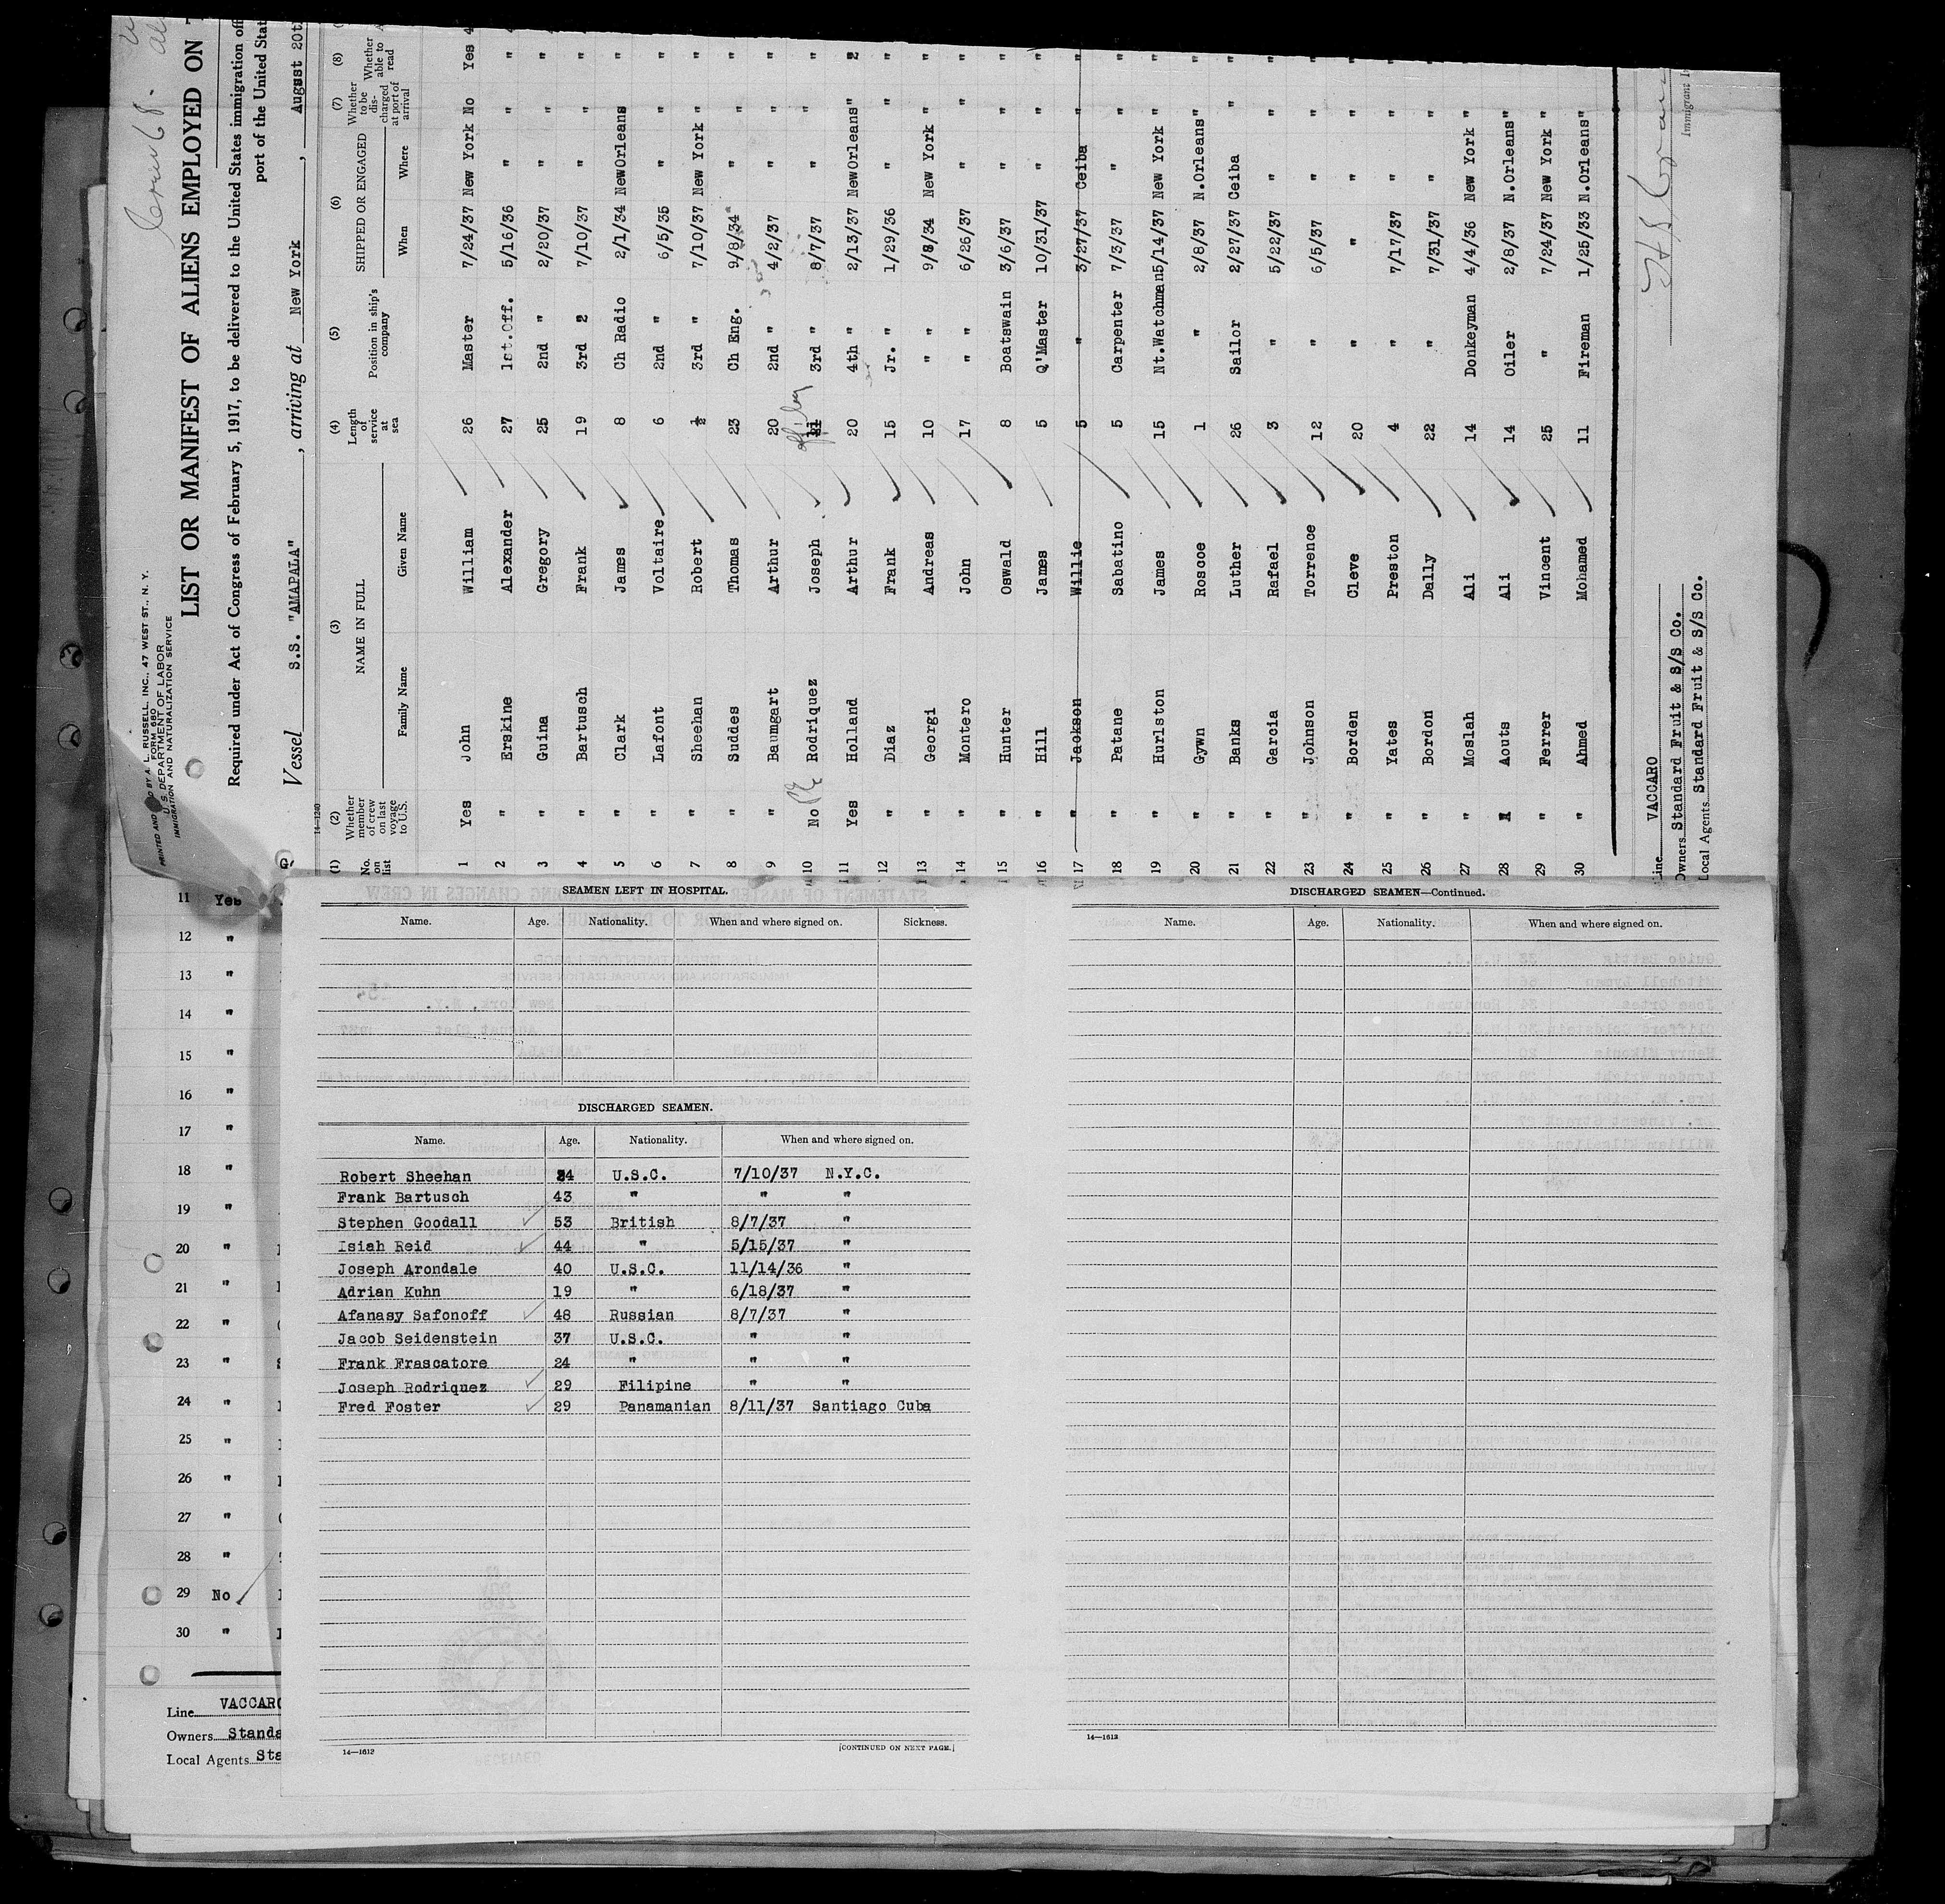 PRINTED AND BY A. L. RUSSELL, INC., 47 WEST ST., N. Y.
FORM 680
U. S. DEPARTMENT OF LABOR
IMMIGRATION AND NATURALIZATION SERVICE
LIST OR MANIFEST OF ALIENS EMPLOYED ON
Required under Act of Congress of February 5, 1917, to be delivered to the United States immigration
port of the United
Vessel S.S. "AMAPALA", arriving at New York, August 20th
14-1240
(1) (2) (3) (4) (5) (6) (7) (8)
No. on list Whether member of crew on last voyage to U.S. NAME IN FULL Family Name Given Name Length of service at sea Position in ship's company SHIPPED OR ENGAGED When Where Whether to be discharged at port of arrival Whether able to read
1 Yes John William 26 Master 7/24/37 New York No Yes
2 " Erskine Alexander 27 1st.Off. 5/16/36 " " "
3 " Guina Gregory 25 2nd " 2/20/37 " " "
4 " Bartusch Frank 19 3rd 2 7/10/37 " " "
5 " Clark James 8 Ch Radio 2/1/34 NewOrleans "
6 " Lafont Voltaire 6 2nd " 6/5/35 " " "
7 " Sheehan Robert ½ 3rd " 7/10/37 New York " "
8 " Suddes Thomas 23 Ch Eng. 9/8/34 " " "
9 " Baumgart Arthur 20 2nd " 4/2/37 " " "
10 No Rodriquez Joseph 3rd " 8/7/37 " " "
11 Yes Holland Arthur 20 4th " 2/13/37 NewOrleans" 2
12 " Diaz Frank 15 Jr. " 1/29/36 " " "
13 " Georgi Andreas 10 " " 9/8/34 New York " "
14 " Montero John 17 " " 6/26/37 " " "
15 " Hunter Oswald 8 Boatswain 3/6/37 " " "
16 " Hill James 5 Q'Master 10/31/37 " " "
17 " Jackson Willie 5 " 3/27/37 Ceiba " "
18 " Patane Sabatino 5 Carpenter 7/3/37 " " "
19 " Hurlston James 15 Nt.Watchman 5/14/37 New York " "
20 " Gywn Roscoe 1 " 2/8/37 N.Orleans" "
21 " Banks Luther 26 Sailor 2/27/37 Ceiba " "
22 " Garcia Rafael 3 " 5/22/37 " " "
23 " Johnson Torrence 12 " 6/5/37 " " "
24 " Borden Cleve 20 " " " " "
25 " Yates Preston 4 " 7/17/37 " " "
26 " Bordon Dally 22 " 7/31/37 " " "
27 " Moslah Ali 14 Donkeyman 4/4/36 New York " "
28 " Aouts Ali 14 Oiler 2/8/37 N.Orleans" "
29 " Ferrer Vincent 25 " 7/24/37 New York " "
30 " Ahmed Mohamed 11 Fireman 1/25/33 N.Orleans" "
Line VACCARO
Owners Standard Fruit & S/S Co.
Local Agents Standard Fruit & S/S Co.
Immigrant
11 Yes
12 "
13 "
14 "
15 "
16 "
17 "
18 "
19 "
20 "
21 "
22 "
23 "
24 "
25 "
26 "
27 "
28 "
29 No
30 "
Line VACCARO
Owners Standa
Local Agents Sta
SEAMEN LEFT IN HOSPITAL.
Name. Age. Nationality. When and where signed on. Sickness.
DISCHARGED SEAMEN.
Name. Age. Nationality. When and where signed on.
Robert Sheehan 24 U.S.C. 7/10/37 N.Y.C.
Frank Bartusch 43 " " "
Stephen Goodall 53 British 8/7/37 "
Isiah Reid 44 " 5/15/37 "
Joseph Arondale 40 U.S.C. 11/14/36 "
Adrian Kuhn 19 " 6/18/37 "
Afanasy Safonoff 48 Russian 8/7/37 "
Jacob Seidenstein 37 U.S.C. " "
Frank Frascatore 24 " " "
Joseph Rodriquez 29 Filipine " "
Fred Foster 29 Panamanian 8/11/37 Santiago Cuba
14—1612
[CONTINUED ON NEXT PAGE.]
DISCHARGED SEAMEN—Continued.
Name. Age. Nationality. When and where signed on.
14—1612